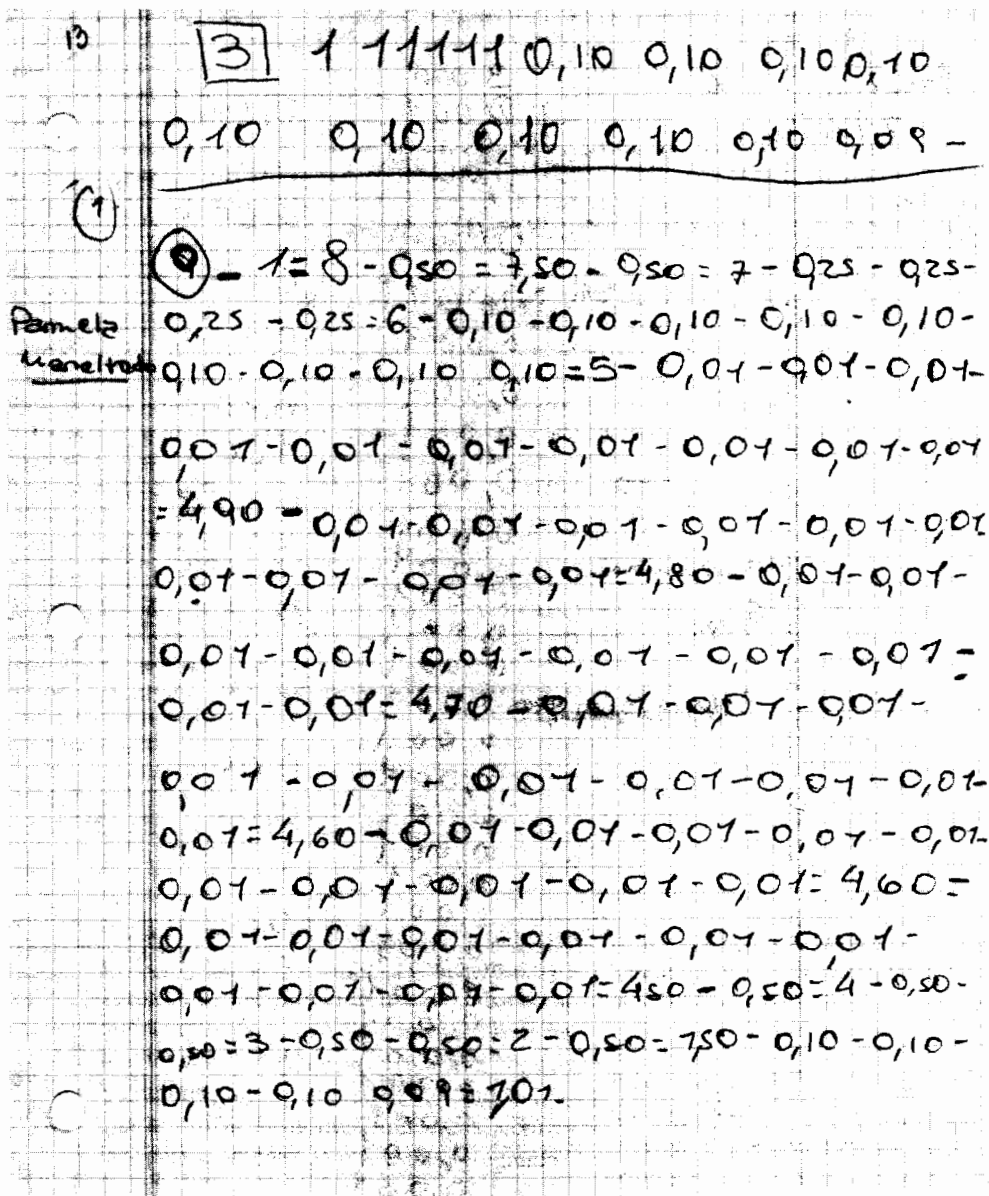 13
3 1 11111 0,10 0,10 0,10 0,10
0,10 0,10 0,10 0,10 0,10 0,09 -
1
9 - 1 = 8 - 0,50 = 7,50 - 0,50 = 7 - 0,25 - 0,25 -
Pamela
0,25 - 0,25 = 6 - 0,10 - 0,10 - 0,10 - 0,10 - 0,10 -
0,10 - 0,10 - 0,10 0,10 = 5 - 0,01 - 0,01 - 0,01 -
0,01 - 0,01 - 0,01 - 0,01 - 0,01 - 0,01 - 0,01
= 4,90 - 0,01 - 0,01 - 0,01 - 0,01 - 0,01 - 0,01
0,01 - 0,01 - 0,01 - 0,01 = 4,80 - 0,01 - 0,01 -
0,01 - 0,01 - 0,01 - 0,01 - 0,01 - 0,01 -
0,01 - 0,01 = 4,70 - 0,01 - 0,01 - 0,01 -
0,01 - 0,01 - 0,01 - 0,01 - 0,01 - 0,01 -
0,01 = 4,60 - 0,01 - 0,01 - 0,01 - 0,01 - 0,01 -
0,01 - 0,01 - 0,01 - 0,01 - 0,01 = 4,60 =
0,01 - 0,01 - 0,01 - 0,01 - 0,01 - 0,01 -
0,01 - 0,01 - 0,01 - 0,01 = 450 - 0,50 = 4 - 0,50 -
0,50 = 3 - 0,50 - 0,50 = 2 - 0,50 = 1,50 - 0,10 - 0,10 -
0,10 - 0,10 0,09 = 1,01.